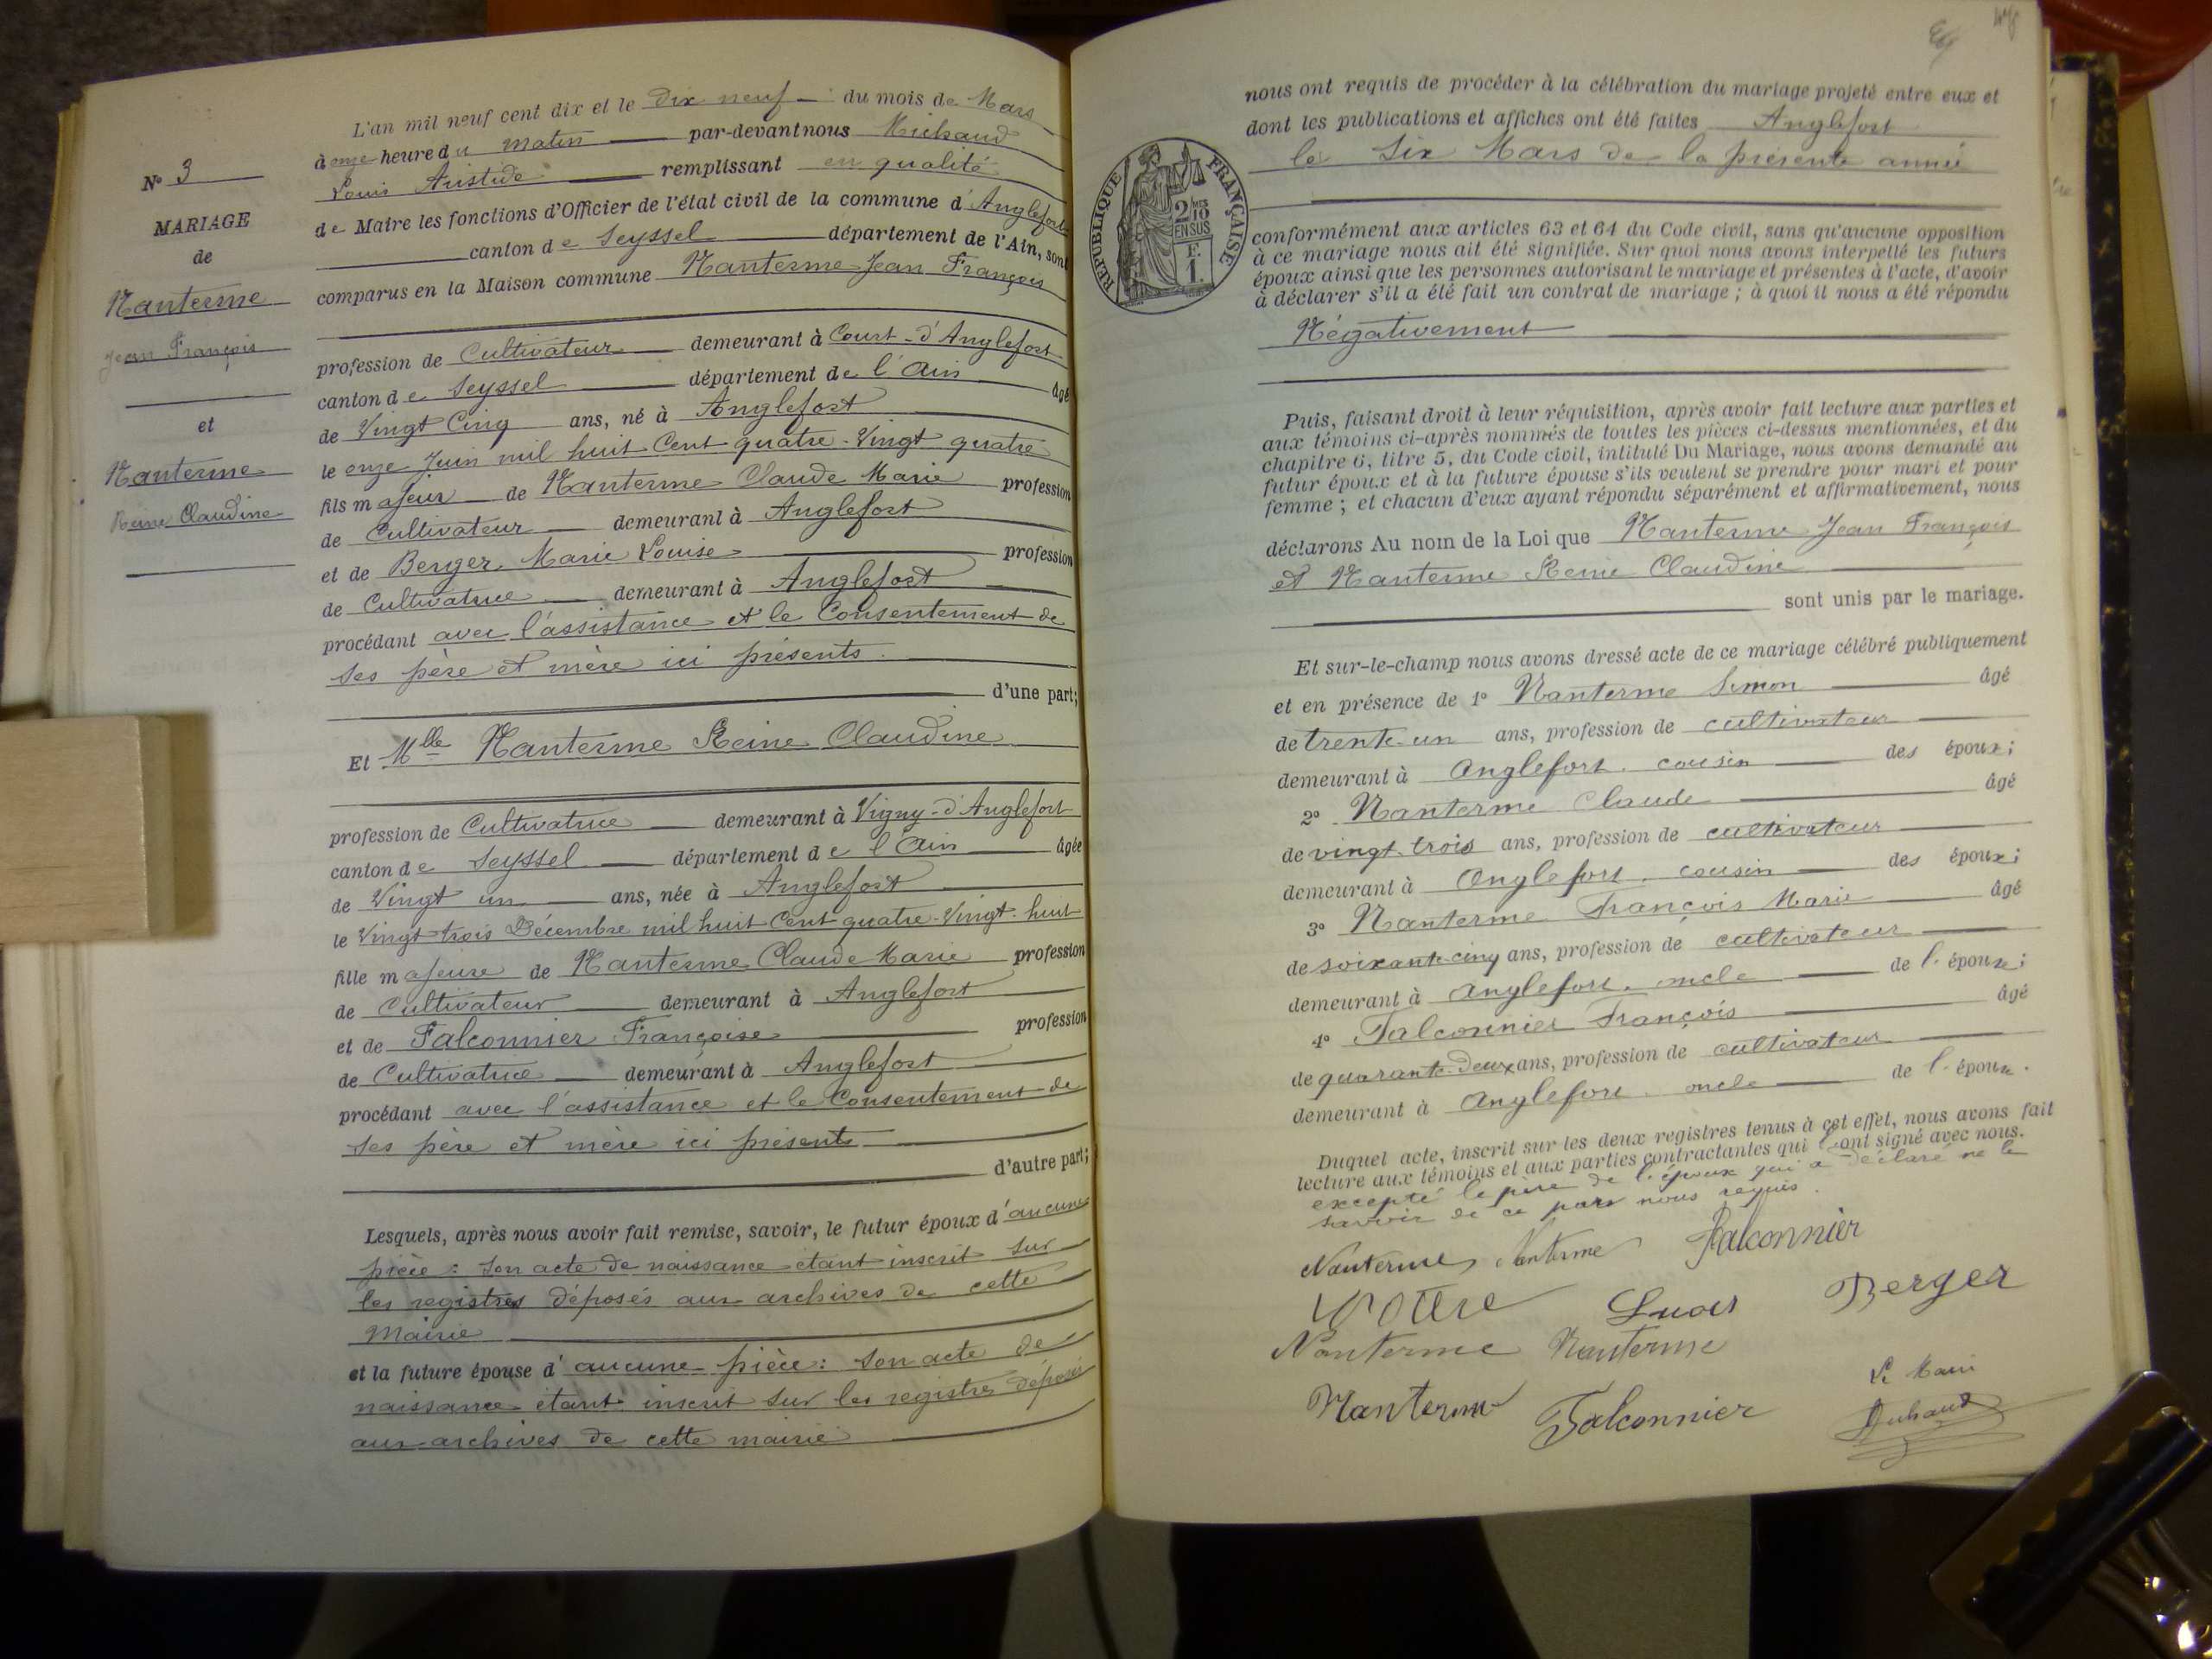 N° 3
MARIAGE
de
Nanterme
Jean François
et
Nanterme
Reine Claudine
L'an mil neuf cent dix et le Dix neuf du mois de Mars
à onze heure du matin par-devant nous Michaud
Louis Aristide remplissant en qualité
de Maire les fonctions d'Officier de l'état civil de la commune d'Anglefort
canton de Seyssel département de l'Ain, sont
comparus en la Maison commune Nanterme Jean François
profession de Cultivateur demeurant à Court-d'Anglefort
canton de Seyssel département de l'Ain âgé
de Vingt Cinq ans, né à Anglefort
le onze Juin mil huit Cent quatre-Vingt quatre
fils majeur de Nanterme Claude Marie profession
de Cultivateur demeurant à Anglefort
et de Berger Marie Louise profession
de Cultivatrice demeurant à Anglefort
procédant avec l'assistance et le Consentement de
ses père et mère ici présents
d'une part;
Et Mlle Nanterme Reine Claudine
profession de Cultivatrice demeurant à Vigny-d'Anglefort
canton de Seyssel département de l'Ain âgée
de Vingt un ans, née à Anglefort
le Vingt-trois Décembre mil huit Cent quatre-Vingt-huit
fille majeure de Nanterme Claude Marie profession
de Cultivateur demeurant à Anglefort
et de Falconnier Françoise profession
de Cultivatrice demeurant à Anglefort
procédant avec l'assistance et le Consentement de
ses père et mère ici présents
d'autre part;
Lesquels, après nous avoir fait remise, savoir, le futur époux d'aucune
pièce: son acte de naissance étant inscrit sur
les registres déposés aux archives de cette
Mairie
et la future épouse d'aucune pièce: son acte de
naissance étant inscrit sur les registres déposés
aux archives de cette mairie
RÉPUBLIQUE FRANÇAISE
2/10 MES
EN SUS
F.
1.
nous ont requis de procéder à la célébration du mariage projeté entre eux et
dont les publications et affiches ont été faites Anglefort
le Six Mars de la présente année
conformément aux articles 63 et 64 du Code civil, sans qu'aucune opposition
à ce mariage nous ait été signifiée. Sur quoi nous avons interpellé les futurs
époux ainsi que les personnes autorisant le mariage et présentes à l'acte, d'avoir
à déclarer s'il a été fait un contrat de mariage; à quoi il nous a été répondu
Négativement
Puis, faisant droit à leur réquisition, après avoir fait lecture aux parties et
aux témoins ci-après nommés de toutes les pièces ci-dessus mentionnées, et du
chapitre 6, titre 5, du Code civil, intitulé Du Mariage, nous avons demandé au
futur époux et à la future épouse s'ils veulent se prendre pour mari et pour
femme; et chacun d'eux ayant répondu séparément et affirmativement, nous
déclarons Au nom de la Loi que Nanterme Jean François
et Nanterme Reine Claudine
sont unis par le mariage.
Et sur-le-champ nous avons dressé acte de ce mariage célébré publiquement
et en présence de 1° Nanterme Simon âgé
de trente-un ans, profession de cultivateur
demeurant à Anglefort. cousin des époux;
2° Nanterme Claude âgé
de vingt-trois ans, profession de cultivateur
demeurant à Anglefort. cousin des époux;
3° Nanterme François Marie âgé
de soixante-cinq ans, profession de cultivateur
demeurant à Anglefort. oncle de l'époux;
4° Falconnier François âgé
de quarante-Deux ans, profession de cultivateur
demeurant à Anglefort. oncle de l'épouse.
Duquel acte, inscrit sur les deux registres tenus à cet effet, nous avons fait
lecture aux témoins et aux parties contractantes qui l'ont signé avec nous.
excepté le père de l'époux qui a déclaré ne le
savoir de ce par nous requis.
Nanterme Nanterme Falconnier
Berger
Nanterme Nanterme
Le Maire
Nanterme Falconnier Michaud